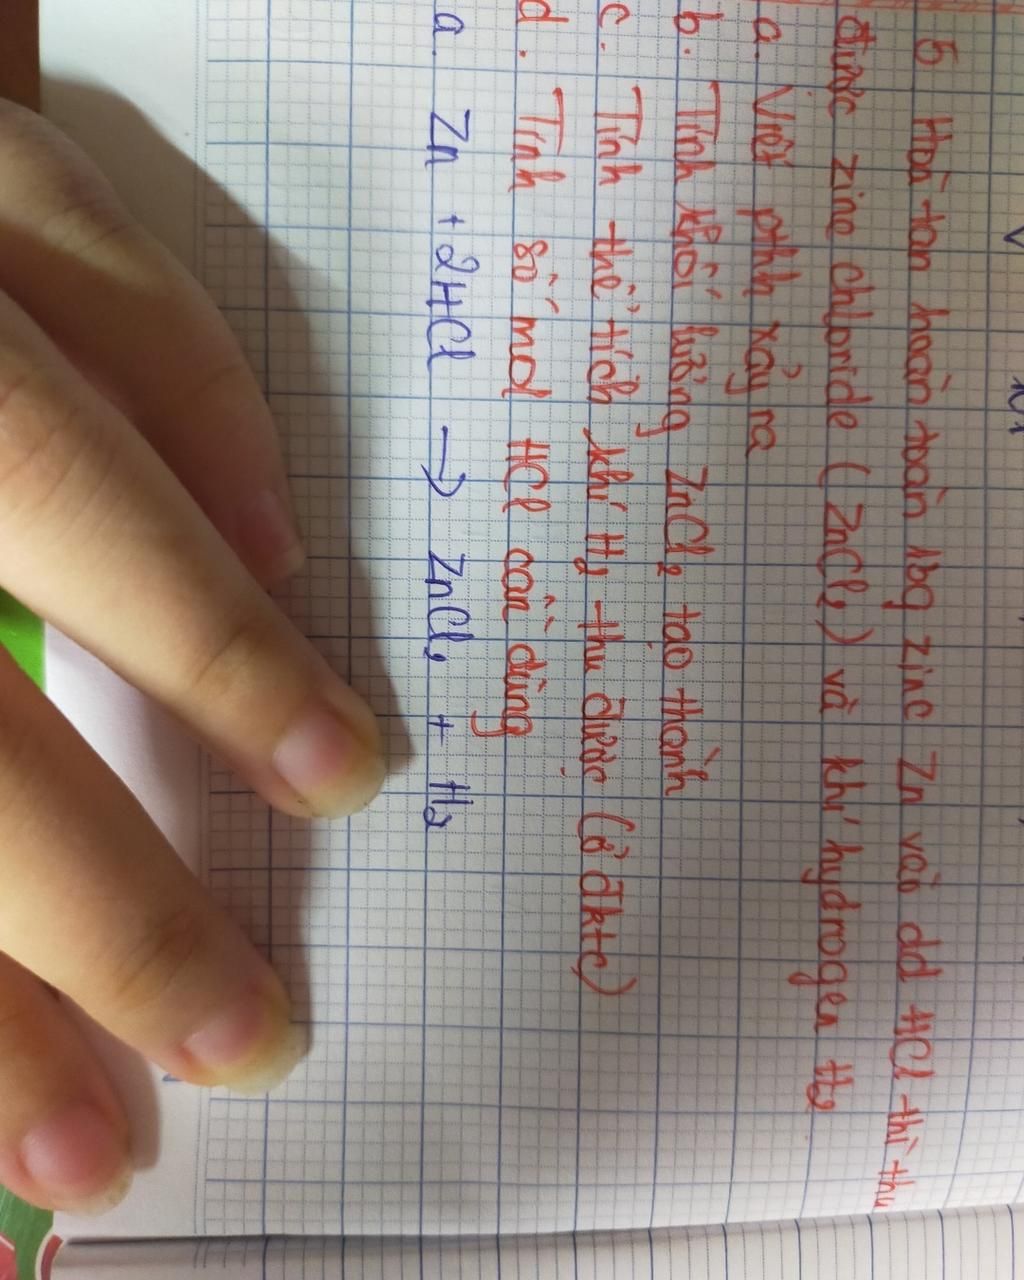 5 Hoà tan hoàn toàn 16g zinc Zn vào dd HCl thì thu
được zinc chloride (ZnCl₂) và khí hydrogen H₂
a. Viết pthh xảy ra
b. Tính khối lượng ZnCl₂ tạo thành
c. Tính thể tích khí H₂ thu được (ở đktc)
d. Tính số mol HCl cần dùng
a. Zn + 2HCl → ZnCl₂ + H₂